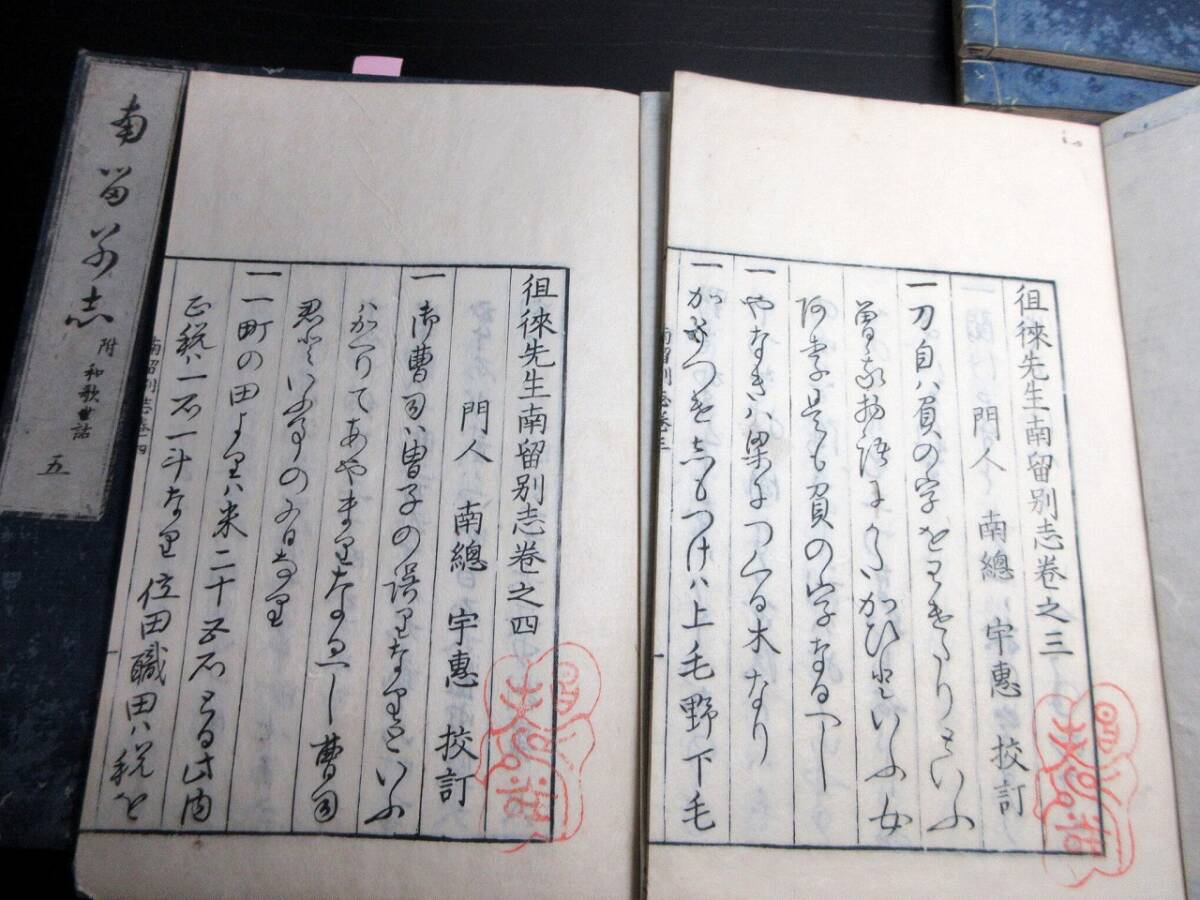 徂徠先生南留別志卷之三
門人 南總 宇惠 挍訂
一刀自ハ負の字をわきたりといふ
曽我物語にくハかひといふ女
阿書是も負の字なるへし
一やなきハ梁につくる木なり
一かもつけしもつけハ上毛野下毛
南留別志卷三
徂徠先生南留別志卷之四
門人 南總 宇惠 挍訂
一御曹司ハ曹子の誤りなりといふ
ハかへりてあやまりなるへし曹司
君といふ事の義なり
一一町の田よりハ米二十五石とる此内
正税ハ一石一斗なり 位田職田ハ税を
南留別志卷四
南留別志 附 和歌世話 五